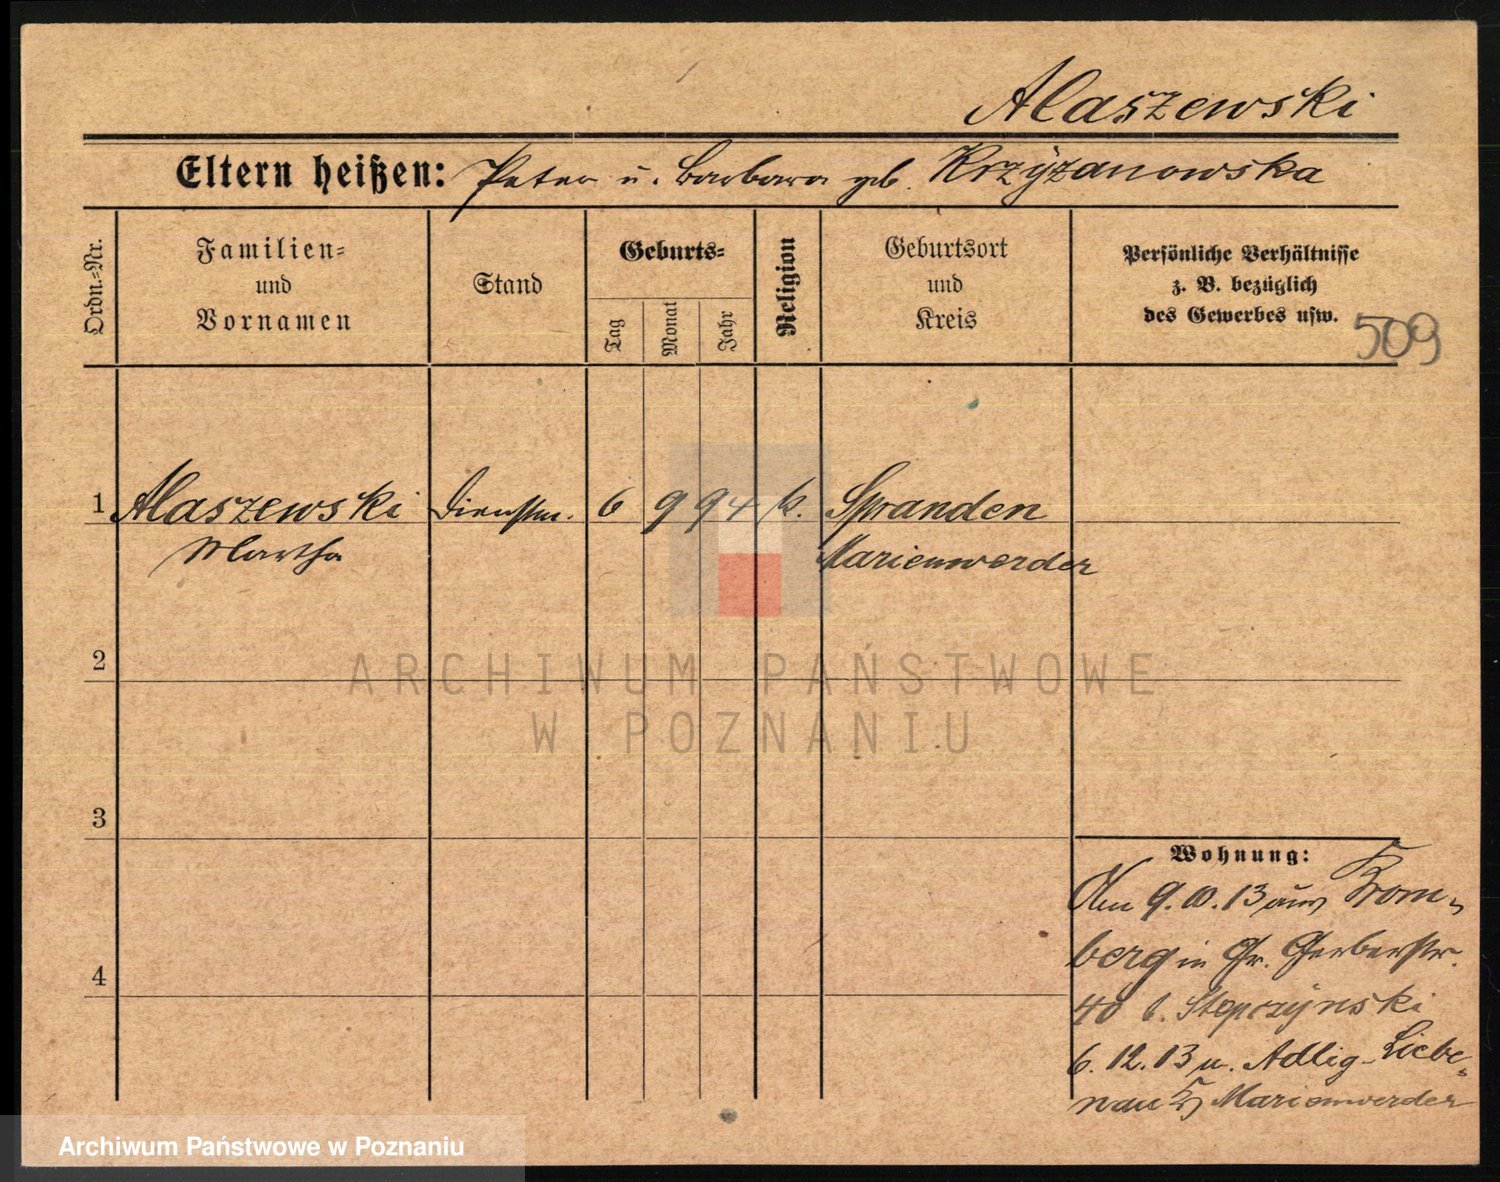 Alaszewski
Eltern heißen: Peter u. Barbara geb. Krzyzanowska
Ordn.=Nr.
Familien=
und
Vornamen
Stand
Geburts=
Tag
Monat
Jahr
Religion
Geburtsort
und
Kreis
Persönliche Verhältnisse
z. B. bezüglich
des Gewerbes usw.
509
1 Alaszewski Dienstm. 6 9 94 k. Spranden
Martha Marienwerder
2
ARCHIWUM PAŃSTWOWE
W POZNANIU
3
Wohnung:
Am 9.10.13 aus Brom-
berg in Gr. Gerberstr.
4
40 b. Stepczynski
6.12.13 n. Adlig-Liebe-
nau Marienwerder
Archiwum Państwowe w Poznaniu